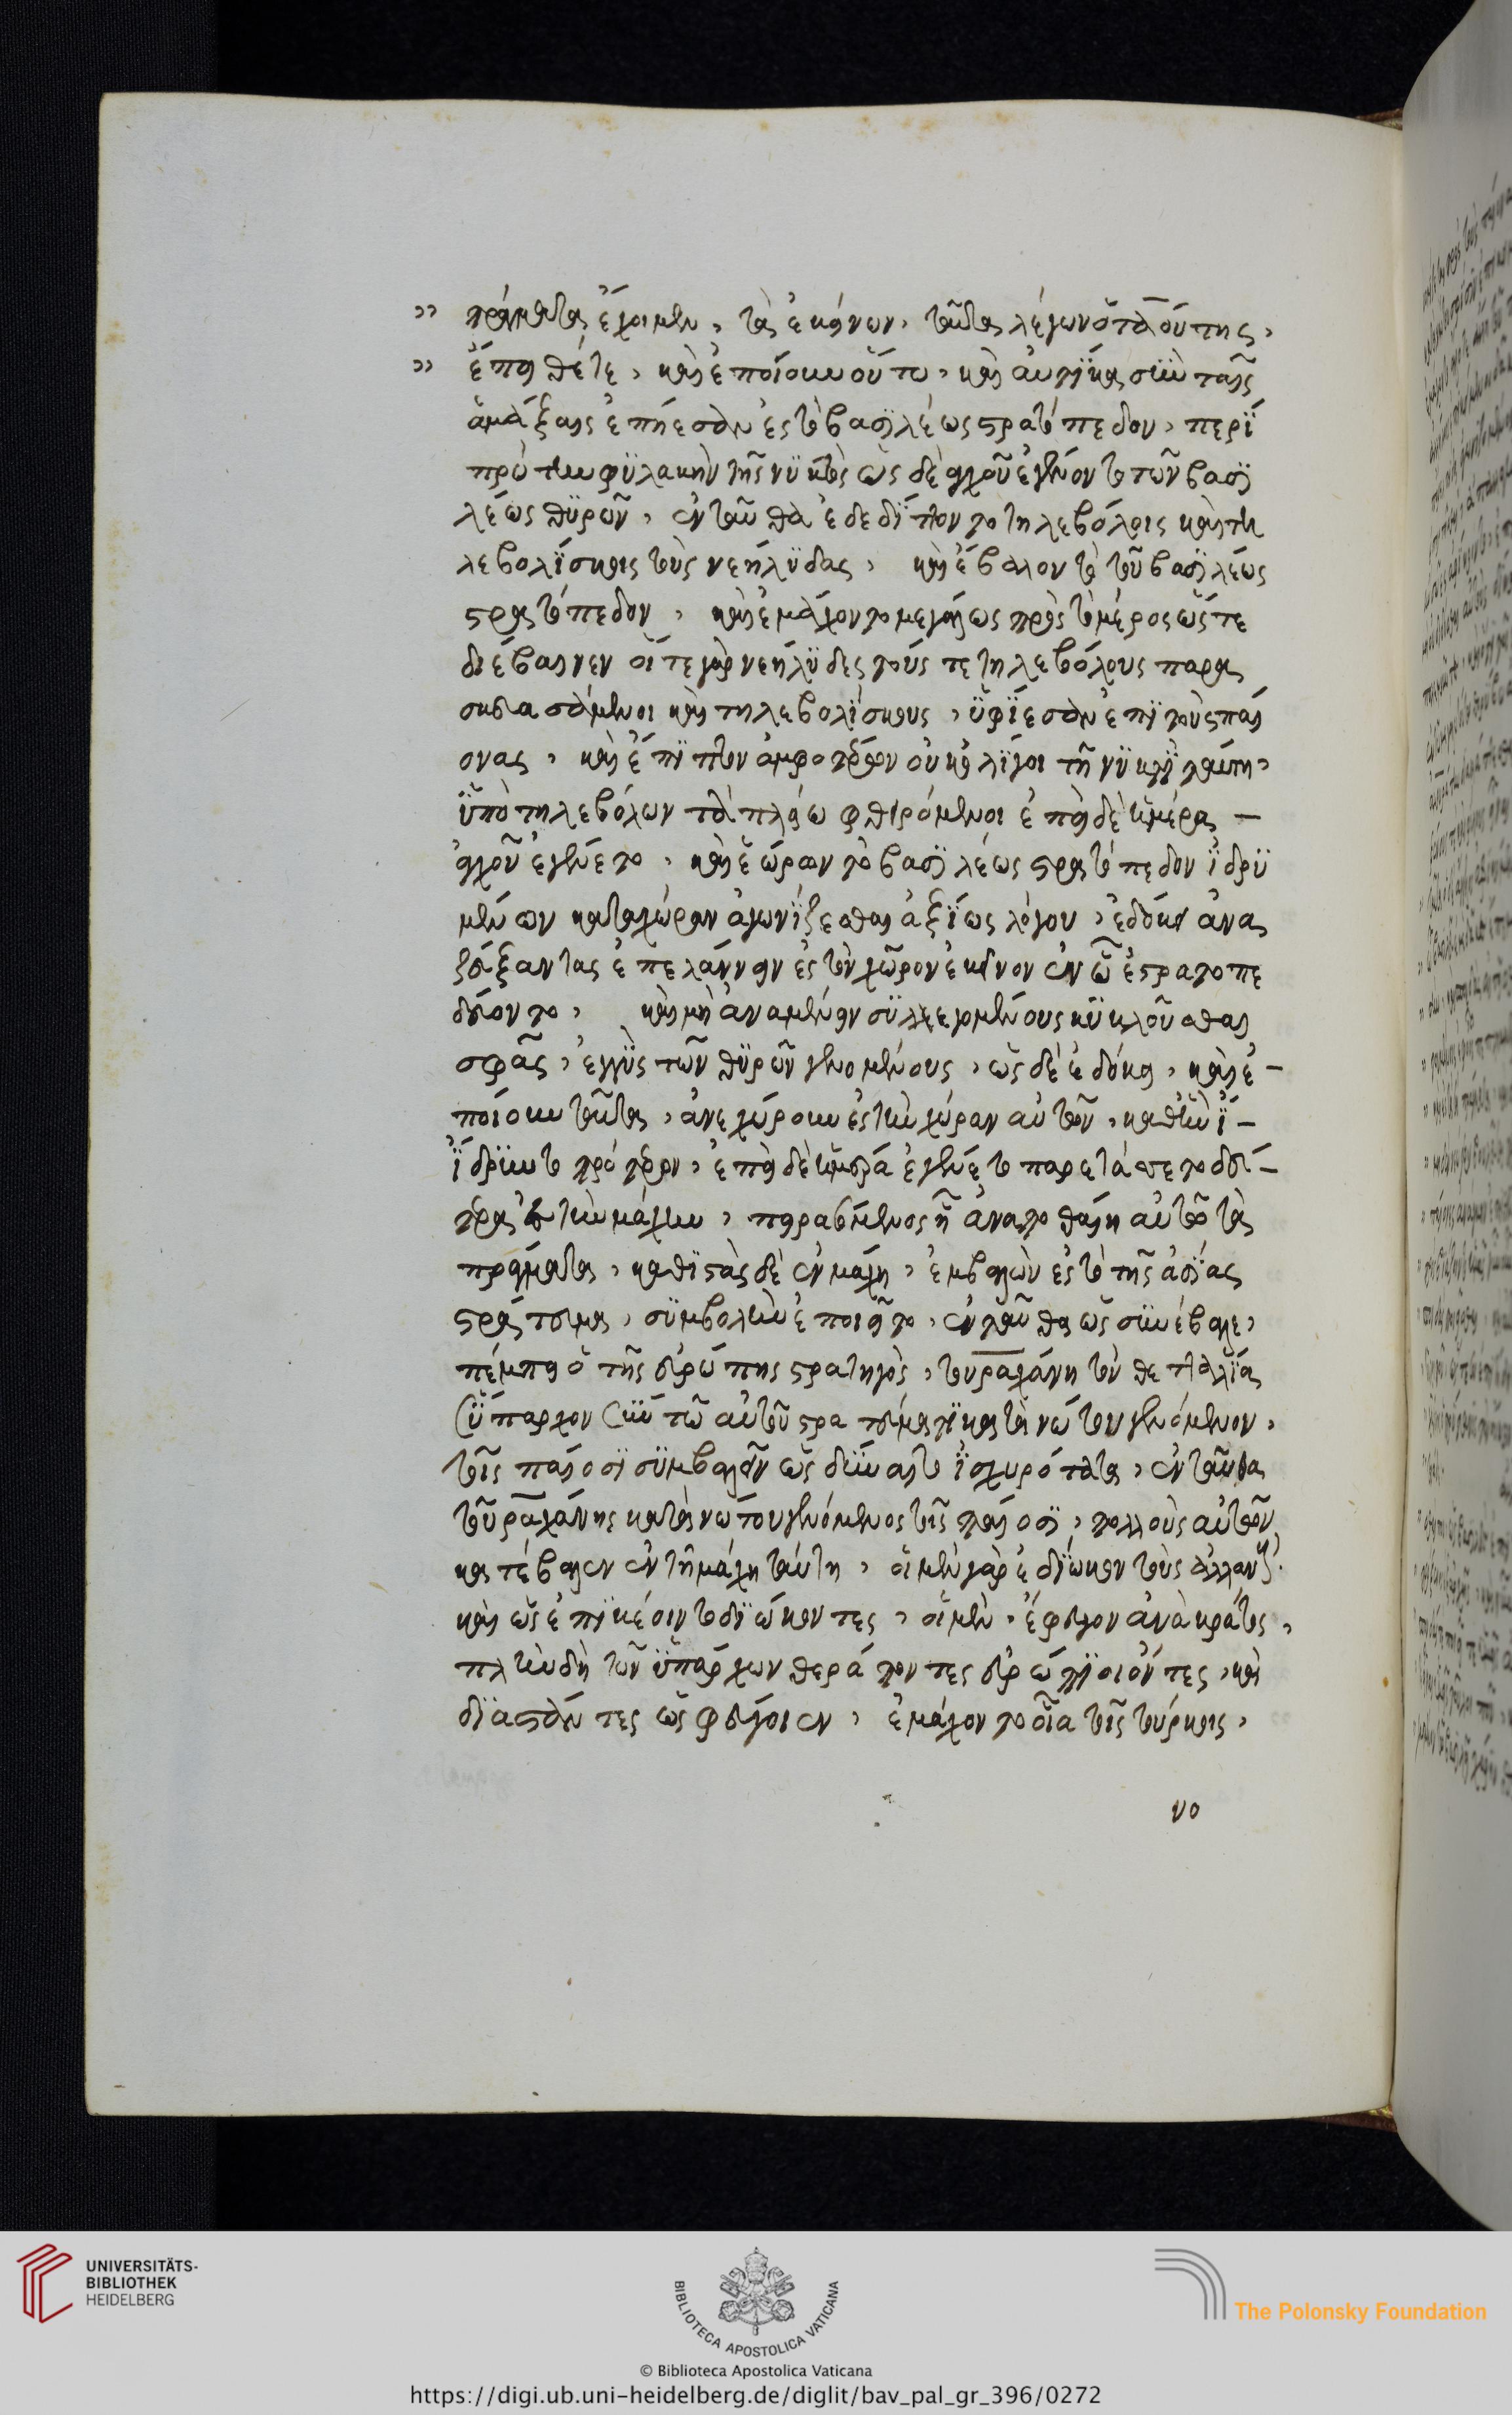 πράγματα ἔχοιμεν, τὰ ἐκείνων. ταῦτα λέγων ὁ σταούτης,
ἔπειθέ τε, καὶ ἐποίουν οὕτω. καὶ αὐτίκα σὺν ταῖς
ἁμάξαις ἐπήεσαν ἐς τὸ βασϊλέως στρατόπεδον, περὶ
πρώτην φϋλακὴν τῆς νϋκτὸς ὡς δὲ ἀγχοῦ ἐγένοντο τῶν βασϊ
λέως θϋρῶν, ἐνταῦθα ἐδεδίττοντο τηλεβόλοις καὶ τη
λεβολίσκοις τοὺς νεήλϋδας, καὶ ἔβαλον τὸ τοῦ βασϊλέως
στρατόπεδον, καὶ ἐμάχοντο μεγάλως πρὸς τὸ μέρος ὥστε
διέβαινεν οἵ τε γὰρ νεήλϋδες τούς τε τηλεβόλους παρα
σκευασάμενοι καὶ τηλεβολίσκους, ὑφίεσαν ἐπὶ τοὺς παί
ονας, καὶ ἔπιπτον ἀμφοτέρων οὐκ ὀλίγοι τῇ νϋκτὶ ταύτη,
ὑπὸ τηλεβόλων τὰ πλείω φθειρόμενοι ἐπεὶ δὲ ἡμέρα –
ἀγχοῦ ἐγένετο, καὶ ἑώρων τὸ βασϊλέως στρατόπεδον ἱδρϋ
μένων κατὰ χώραν ἀγωνίζεσθαι ἀξίως λόγου, ἐδόκει ἀνα
ζεύξαντας ἐπελαύνειν ἐς τὸν χῶρον ἐκεῖνον ἐν ᾧ ἐστρατοπε
δεύοντο, καὶ μὴ ἀναμένειν σϋλλεγομένους κϋκλοῦσθαι
σφᾶς, ἐγγὺς τῶν θϋρῶν γενομένους, ὡς δὲ ἐδόκει, καὶ ἐ–
ποίουν ταῦτα, ἀνεχώρουν ἐς τὴν χώραν αὐτῶν, καθ' ἣν ἵ–
ἵδρϋντο πρότερον, ἐπεὶ δὲ ἡμέρα ἐγένετο παρετάσσετο δευ–
τέρα ἐς τὴν μάχην, πειρασόμενος ἢ ἀναποθείη αὐτῷ τὰ
πράγματα, καθιστὰς δὲ ἐν μάχη, ἐμβαλὼν ἐς τὸ τῆς ἀσίας
στράτευμα, σϋμβολὴν ἐποιεῖτο, ἐνταῦθα ὡς σϋνέβαλε,
πέμπει ὁ τῆς εὐρώπης στρατηγὸς, τουραχάνη τὸν θετταλίας
ὕπαρχον σὺν τῷ αὐτοῦ στρατεύματι κατὰ νώτου γενόμενον,
τοῖς παίοσϊ σϋμβαλεῖν ὡς δύναιτο ἰσχυρότατα, ἐνταῦθα
τουραχάνης κατὰ νώτου γενόμενος τοῖς παίοσϊ, πολλοὺς αὐτῶν
κατέβαλεν ἐν τῇ μάχη ταύτη, οἱ μὲν γὰρ ἐδίωκον τοὺς
καὶ ὡς ἐπϊκέοιντο δϊώκοντες, οἱ μὲν ἔφευγον ἀνὰ κράτος,
πλὴν δὴ τῶν ὑπάρχων θεράποντες εὐρώπϊοι ὄντες, καὶ
δϊαστάντες ὡς φεύγοιεν, ἐμάχοντο οἷα τοῖς τούρκοις,
νο
UNIVERSITÄTS-
BIBLIOTHEK
HEIDELBERG
BIBLIOTECA APOSTOLICA VATICANA
The Polonsky Foundation
© Biblioteca Apostolica Vaticana
https://digi.ub.uni-heidelberg.de/diglit/bav_pal_gr_396/0272